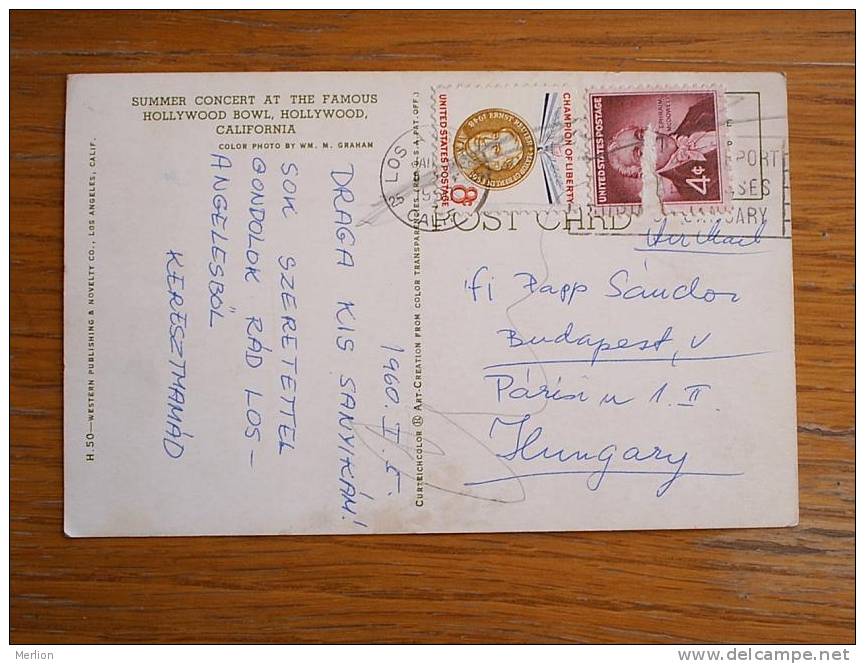 SUMMER CONCERT AT THE FAMOUS
HOLLYWOOD BOWL, HOLLYWOOD,
CALIFORNIA
COLOR PHOTO BY WM. M. GRAHAM
1960. II. 5.
DRAGA KIS SANYIKÁM!
SOK SZERETETTEL
GONDOLOK RÁD LOS-
ANGELESBŐL
KERESZTMAMÁD
H.50—WESTERN PUBLISHING & NOVELTY CO., LOS ANGELES, CALIF.
CURTEICHCOLOR ® ART-CREATION FROM COLOR TRANSPARENCIES (REG. U.S.A. PAT. OFF.)
UNITED STATES POSTAGE
8¢
CHAMPION OF LIBERTY
ERNST REUTER
UNITED STATES POSTAGE
EPHRAIM
MCDOWELL
4¢
LOS
CALIF
POST CARD
Air Mail
ifj Papp Sándor
Budapest, V
Párisi u 1. II.
Hungary
Merlion
www.delcampe.net